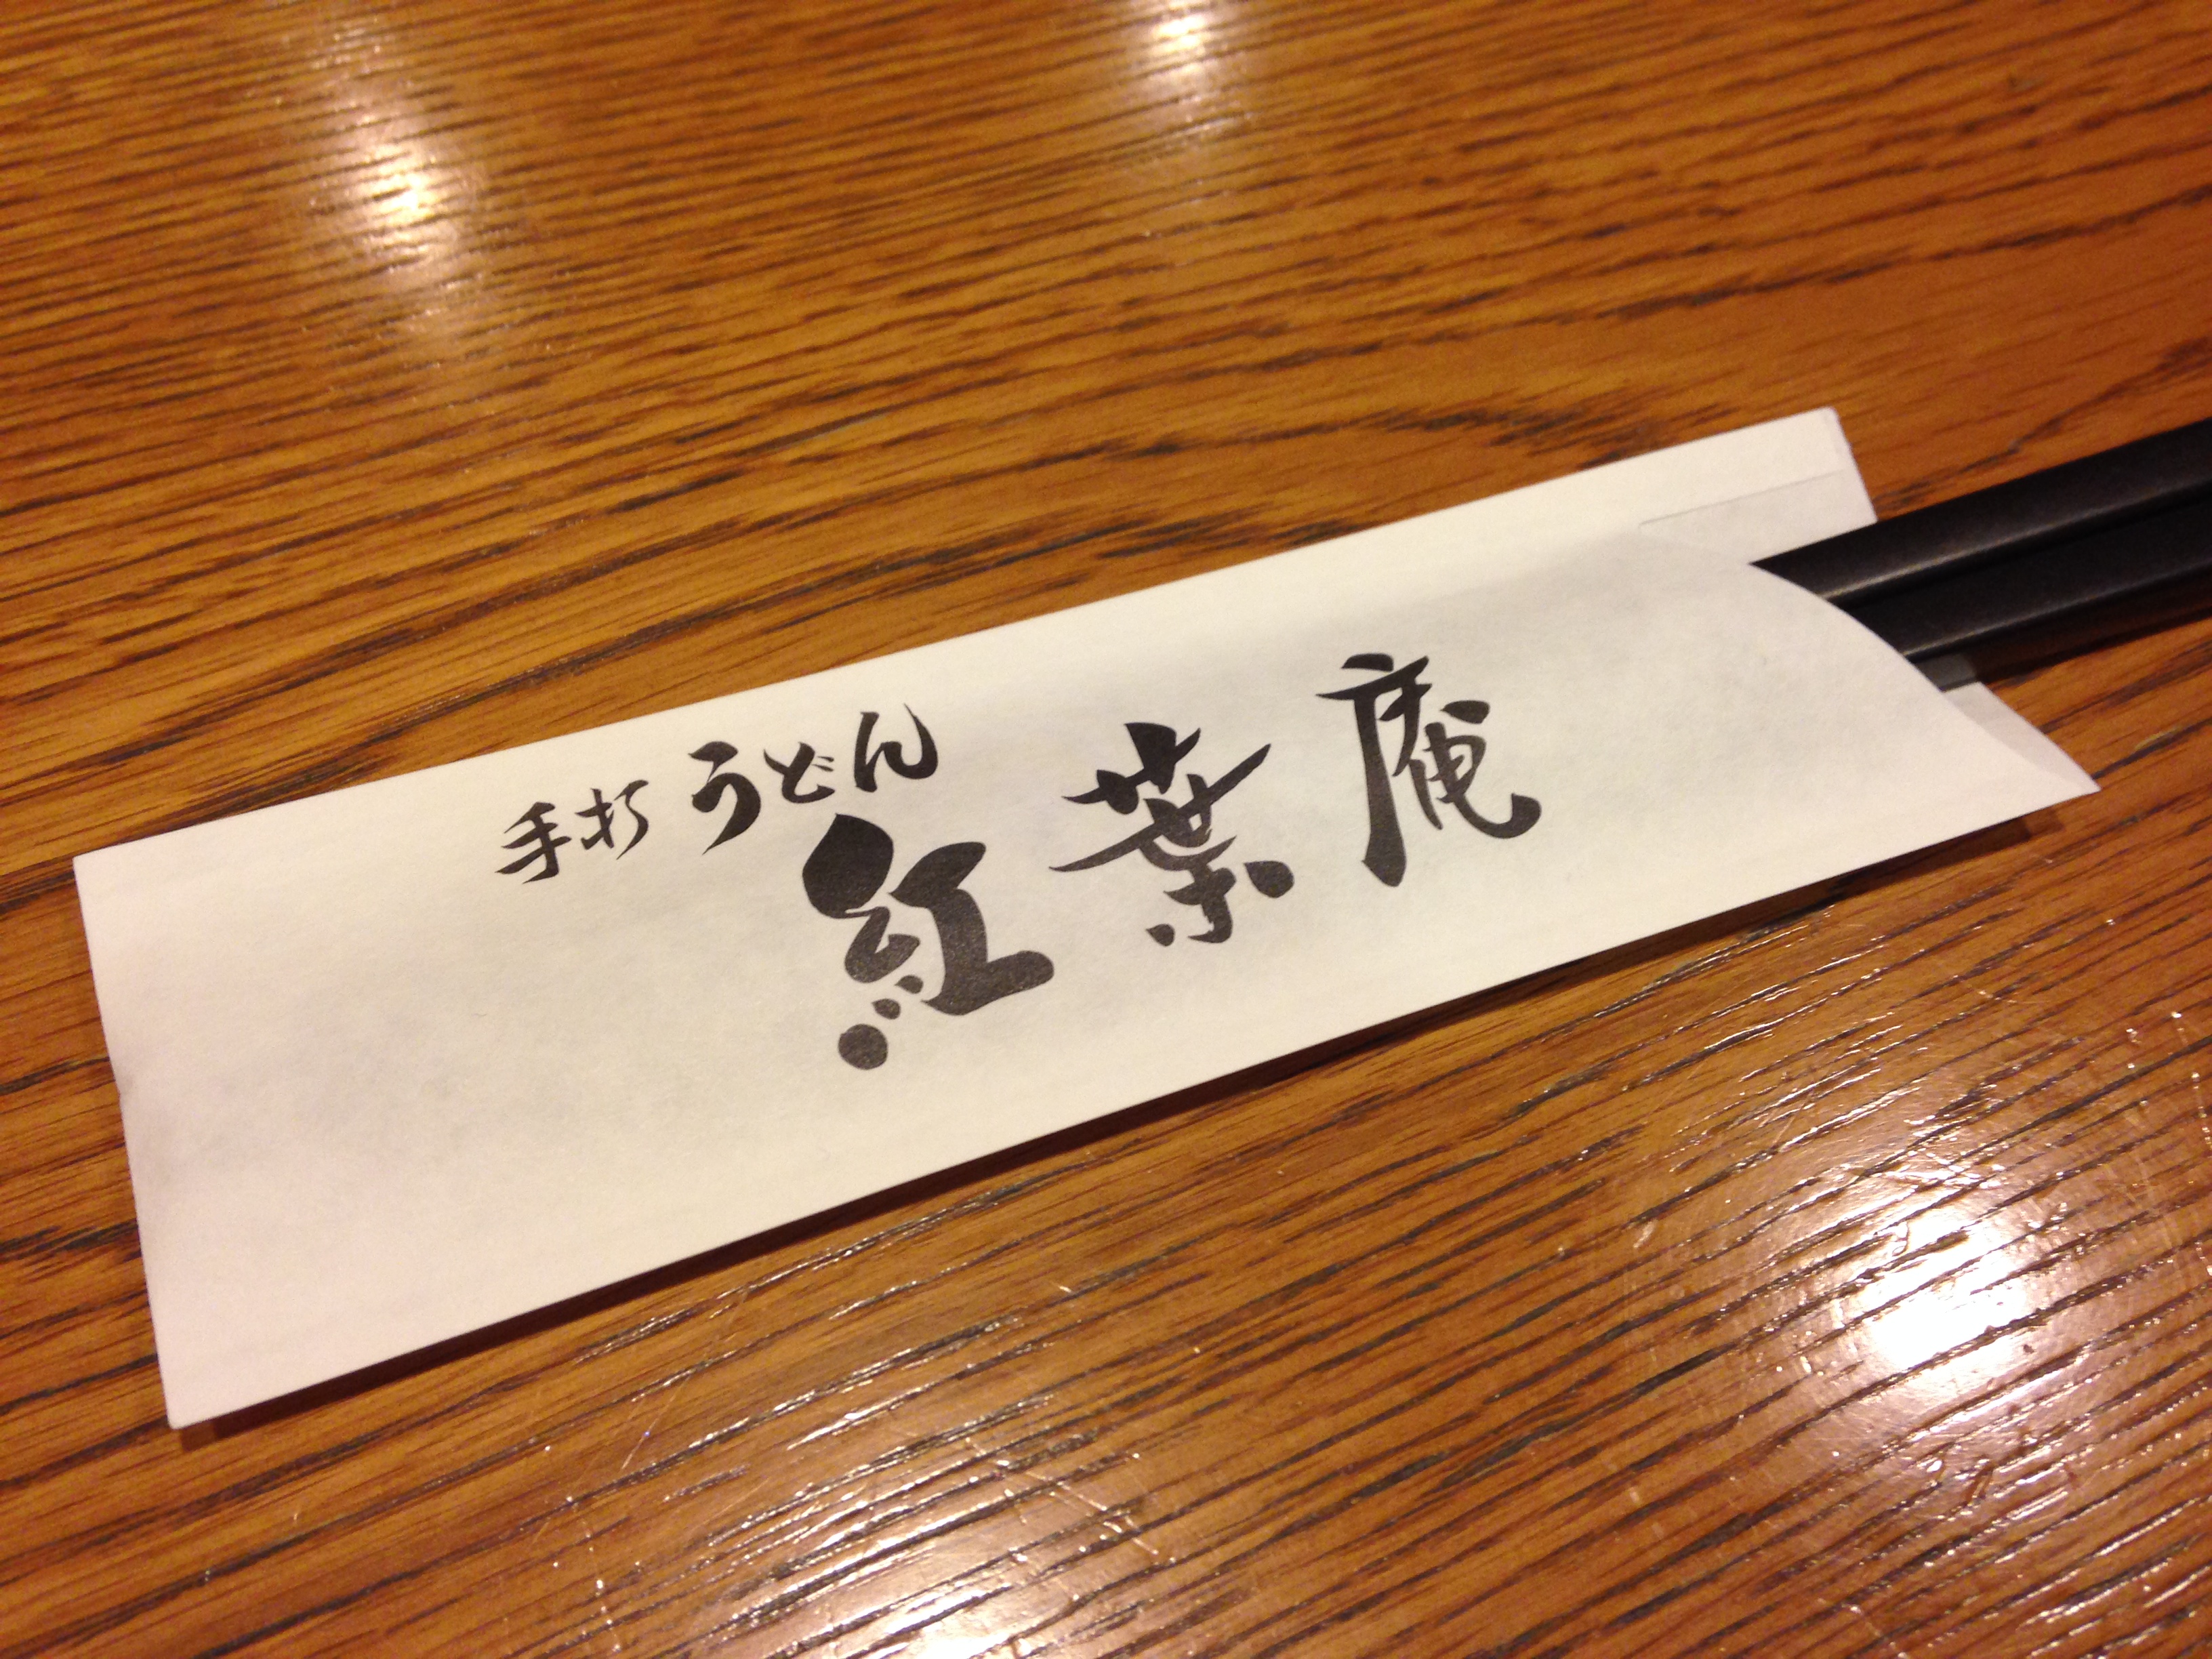 手打うどん
紅葉庵